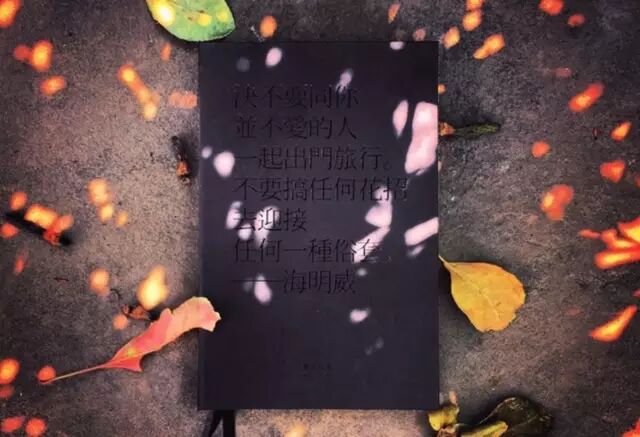 決不要同你
並不愛的人
一起出門旅行。
不要搞任何花招
去迎接
任何一種俗套。
——海明威